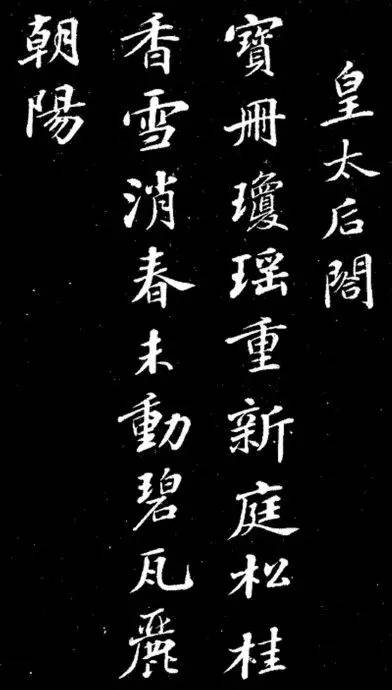 皇太后閤
寶冊瓊瑶重新庭松桂
香雪消春未動碧瓦麗
朝陽